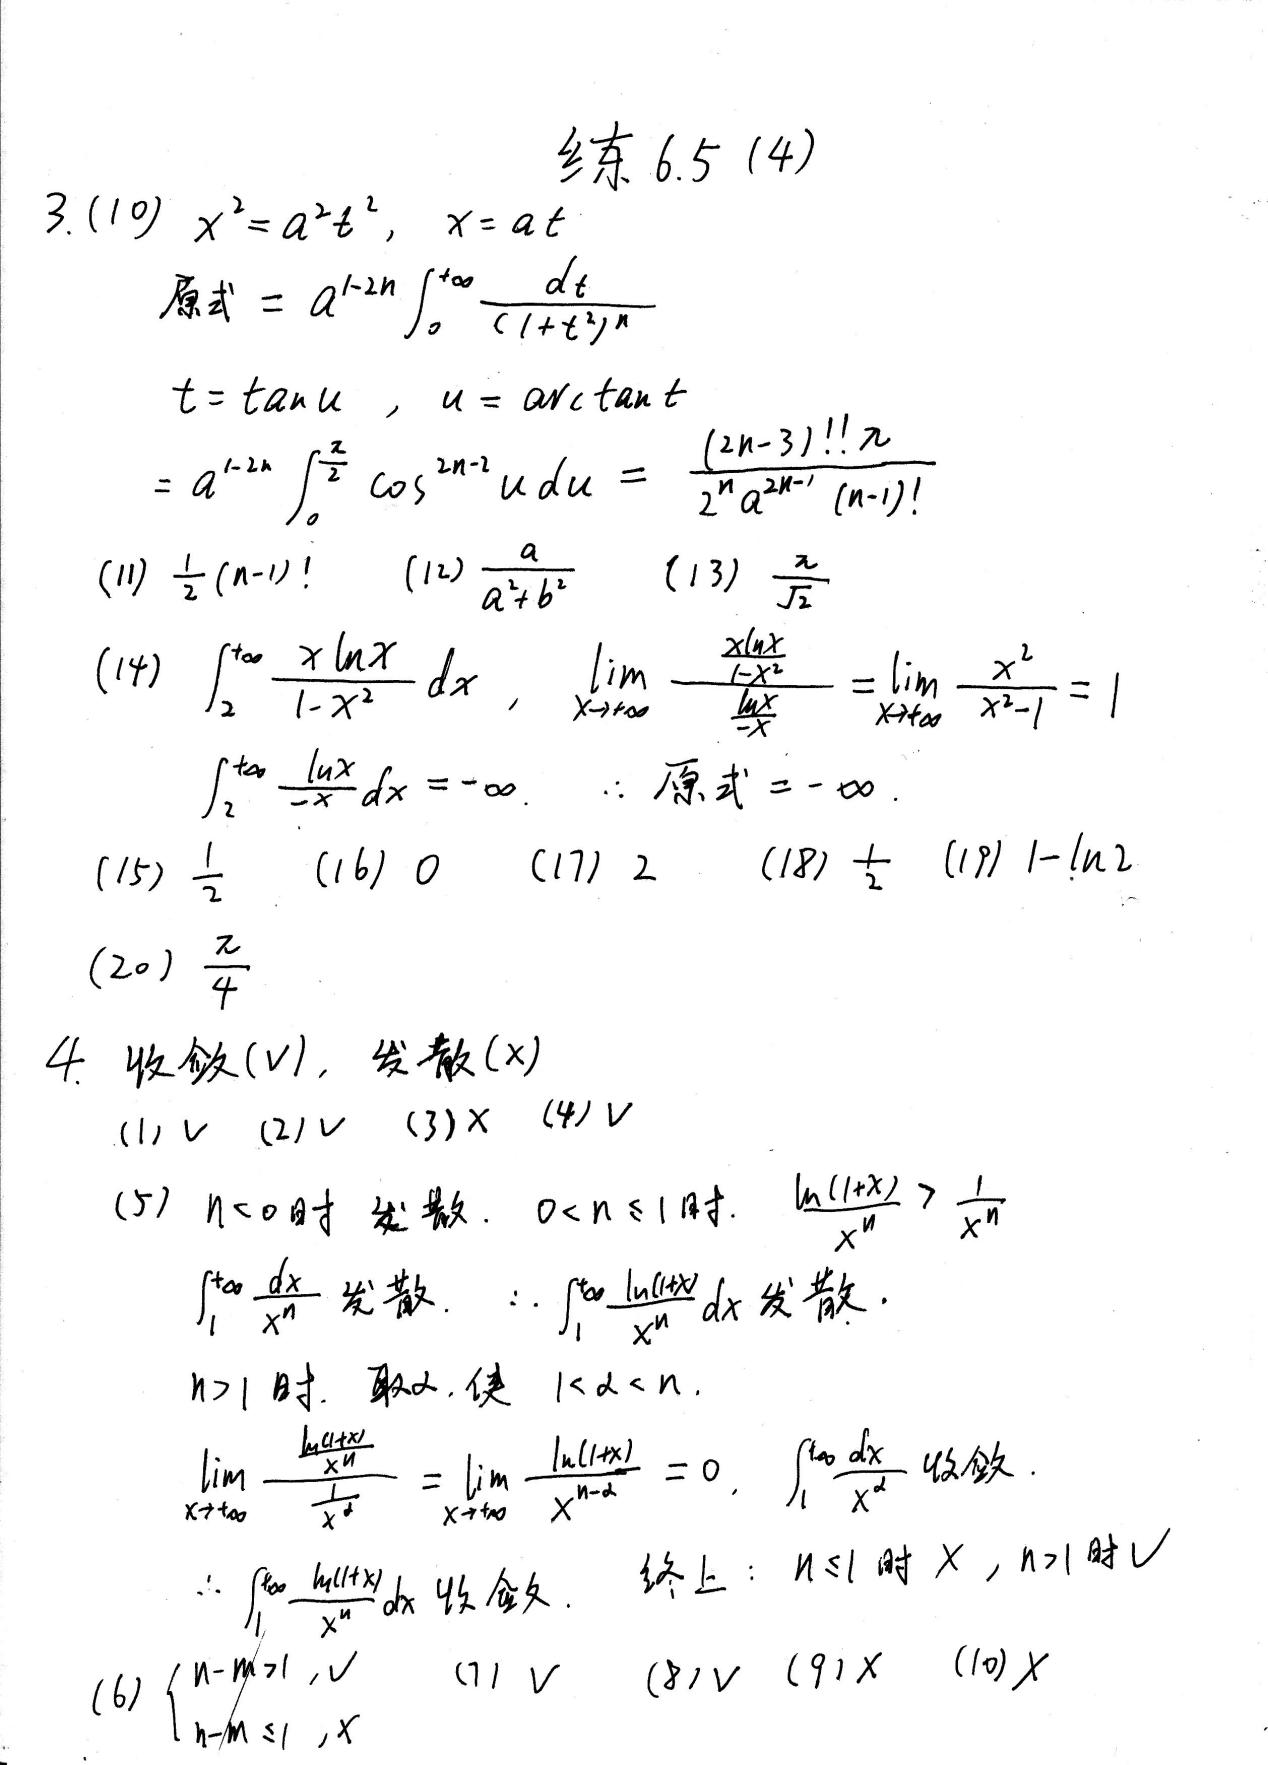 练 6.5 (4)
3. (10) x² = a²t², x = at
原式 = a^{1-2n} ∫_0^{+∞} dt/(1+t²)^n
t = tan u , u = arctan t
= a^{1-2n} ∫_0^{π/2} cos^{2n-2} u du = (2n-3)!! π / (2^n a^{2n-1} (n-1)!)
(11) 1/2 (n-1)! (12) a/(a²+b²) (13) π/√2
(14) ∫_2^{+∞} x ln x/(1-x²) dx , lim_{x→+∞} (x ln x/(1-x²))/(ln x/(-x)) = lim_{x→+∞} x²/(x²-1) = 1
∫_2^{+∞} ln x/(-x) dx = -∞. ∴ 原式 = -∞.
(15) 1/2 (16) 0 (17) 2 (18) 1/2 (19) 1-ln2
(20) π/4
4. 收敛(√), 发散(×)
(1) √ (2) √ (3) × (4) √
(5) n<0时 发散. 0<n≤1时. ln(1+x)/x^n > 1/x^n
∫_1^{+∞} dx/x^n 发散. ∴ ∫_1^{+∞} ln(1+x)/x^n dx 发散.
n>1时. 取α. 使 1<α<n.
lim_{x→+∞} (ln(1+x)/x^n)/(1/x^α) = lim_{x→+∞} ln(1+x)/x^{n-α} = 0. ∫_1^{+∞} dx/x^α 收敛.
∴ ∫_1^{+∞} ln(1+x)/x^n dx 收敛. 终上: n≤1时 ×, n>1时 √
(6) { n-m>1, √ (7) √ (8) √ (9) × (10) ×
n-m≤1, ×